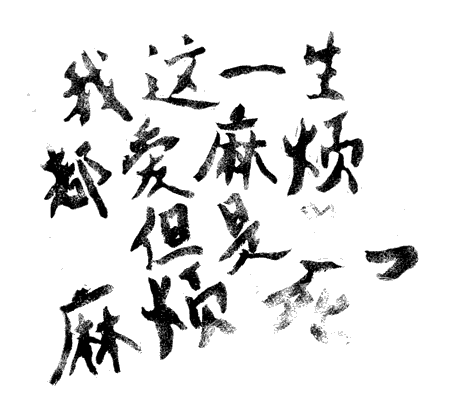 我这一生
都爱麻烦
但是
麻烦死